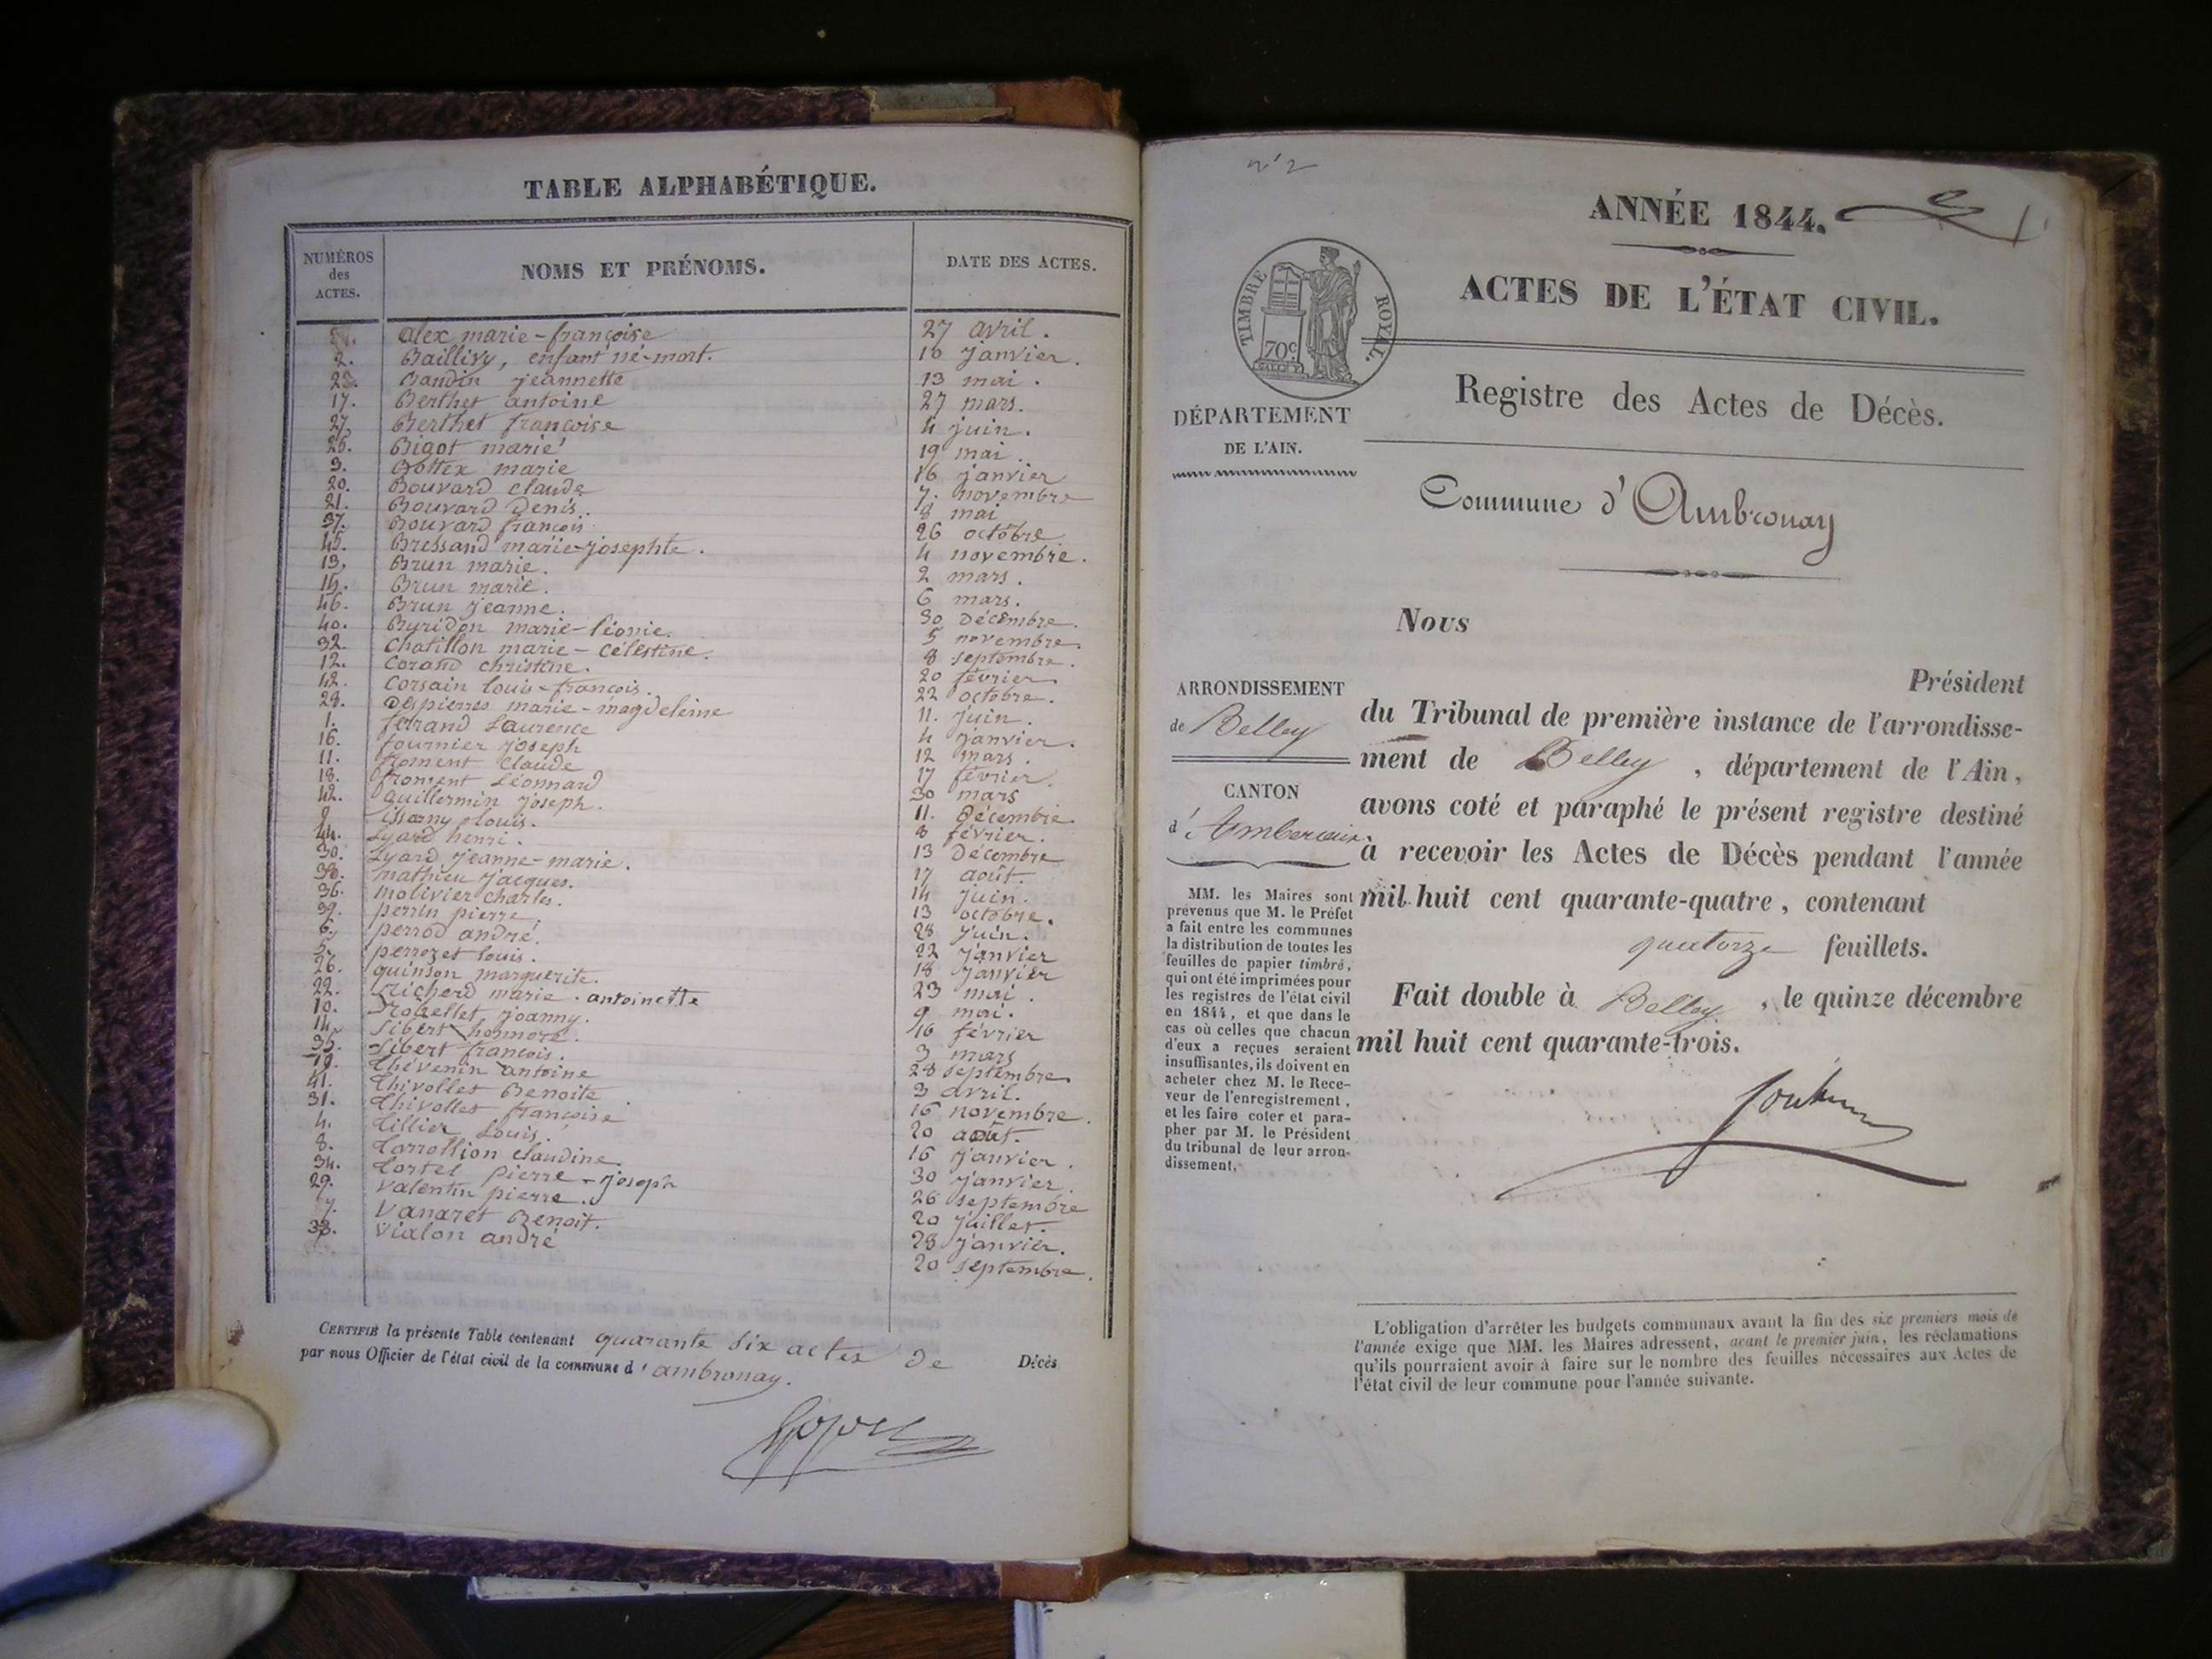 TABLE ALPHABÉTIQUE.
NUMÉROS
des
ACTES.
NOMS ET PRÉNOMS.
DATE DES ACTES.
alex marie-françoise 27 avril.
2. Baillivy, enfant né-mort. 10 janvier.
23. Baudin jeannette 13 mai.
17. Berthet antoine 27 mars.
27. Berthet françoise 4 juin.
25. Bigot marie 19 mai.
3. Bottex marie 16 janvier
20. Bouvard claude 7. novembre
21. Bouvard Denis. 8 mai
37. Bouvard françois 26 octobre
45. Bressand marie-josephte. 4 novembre.
13. Brun marie. 2 mars.
15. Brun marie. 6 mars.
46. Brun jeanne. 30 décembre.
40. Buridon marie-léonie. 5 novembre.
32. Chatillon marie-célestine. 8 septembre.
12. Corand christine. 20 février
42. Corsain louis-françois. 22 octobre.
28. Despierres marie-magdeleine 11. juin.
1. ferrand Laurence 4 janvier.
16. fournier joseph 12 mars.
11. froment Claude 17 février.
18. froment Léonnard 30 mars
42. guillermin joseph. 11. Décembre
9 issarny louis. 8 février.
44. Lyard henri. 13 Décembre
30. Lyard jeanne-marie. 17 août.
38. mathieu jacques. 14 juin.
36. molivier charles. 13 octobre.
39. perrin pierre. 28 juin.
6. perrod andré. 22 janvier
5. perrozet louis. 18 janvier
26. quinson marguerite. 23 mai.
22. richerd marie. antoinette 9 mai.
10. robellet joanny. 16 février
14. Sibert honnoré. 3 mars
35. Sibert françois. 28 septembre
19. Thévenin antoine 3 avril.
41. Thivollet Benoite 16 novembre.
31. Thivollet françoise 20 août.
4. Tillier Louis. 16 janvier.
8. Torrollion claudine 30 janvier.
34. Tortel pierre-joseph 26 septembre
29. Valentin pierre. 20 juillet.
7. Vanaret Benoit. 28 janvier.
33. Vialon andré 20 septembre.
CERTIFIÉ la présente Table contenant quarante six actes de Décès
par nous Officier de l'état civil de la commune d'ambronay.
ANNÉE 1844.
ACTES DE L'ÉTAT CIVIL.
TIMBRE ROYAL.
70c
DÉPARTEMENT
DE L'AIN.
Registre des Actes de Décès.
Commune d'Ambronay
Nous
Président
ARRONDISSEMENT
de Belley
CANTON
d'Amberieux
du Tribunal de première instance de l'arrondisse-
ment de Belley, département de l'Ain,
avons coté et paraphé le présent registre destiné
à recevoir les Actes de Décès pendant l'année
mil huit cent quarante-quatre, contenant
quatorze feuillets.
Fait double à Belley, le quinze décembre
mil huit cent quarante-trois.
MM. les Maires sont
prévenus que M. le Préfet
a fait entre les communes
la distribution de toutes les
feuilles de papier timbré,
qui ont été imprimées pour
les registres de l'état civil
en 1844, et que dans le
cas où celles que chacun
d'eux a reçues seraient
insuffisantes, ils doivent en
acheter chez M. le Rece-
veur de l'enregistrement,
et les faire coter et para-
pher par M. le Président
du tribunal de leur arron-
dissement.
L'obligation d'arrêter les budgets communaux avant la fin des six premiers mois de
l'année exige que MM. les Maires adressent, avant le premier juin, les réclamations
qu'ils pourraient avoir à faire sur le nombre des feuilles nécessaires aux Actes de
l'état civil de leur commune pour l'année suivante.